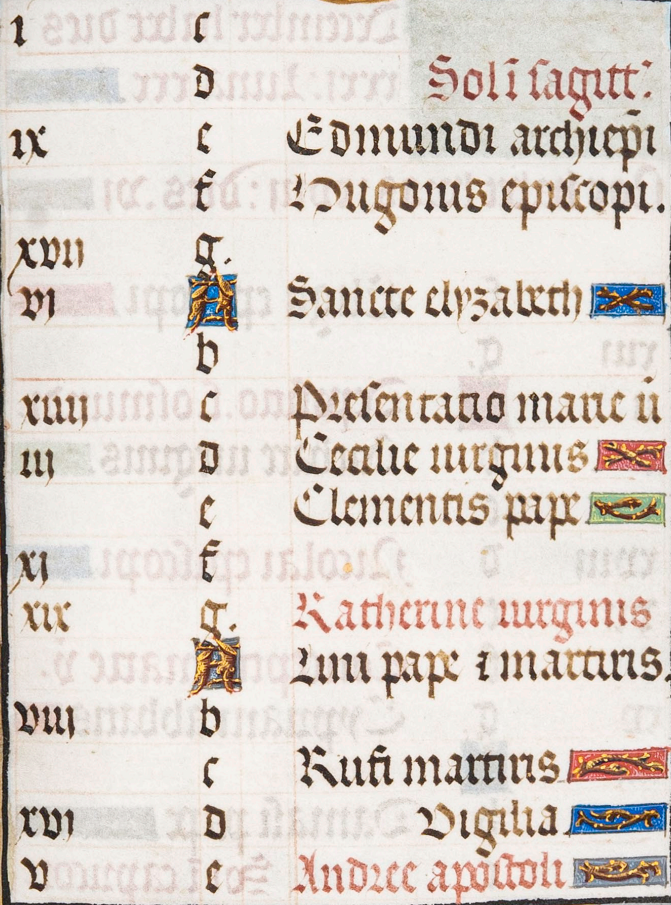 I c
d Sol ĩ sagitt:
ix e Edmundi archiep̃i
f Hugonis episcopi.
xvii g.
vi A Sancte elyzabeth
b
xiiii c Presentatio marie ũ
iii d Cecilie uirginis
e Clementis pape
xi f
xix g. Katherine uirginis
A Lini pape ⁊ martiris.
viii b
c Rufi martiris
xvi d Vigilia
v e Andree apostoli